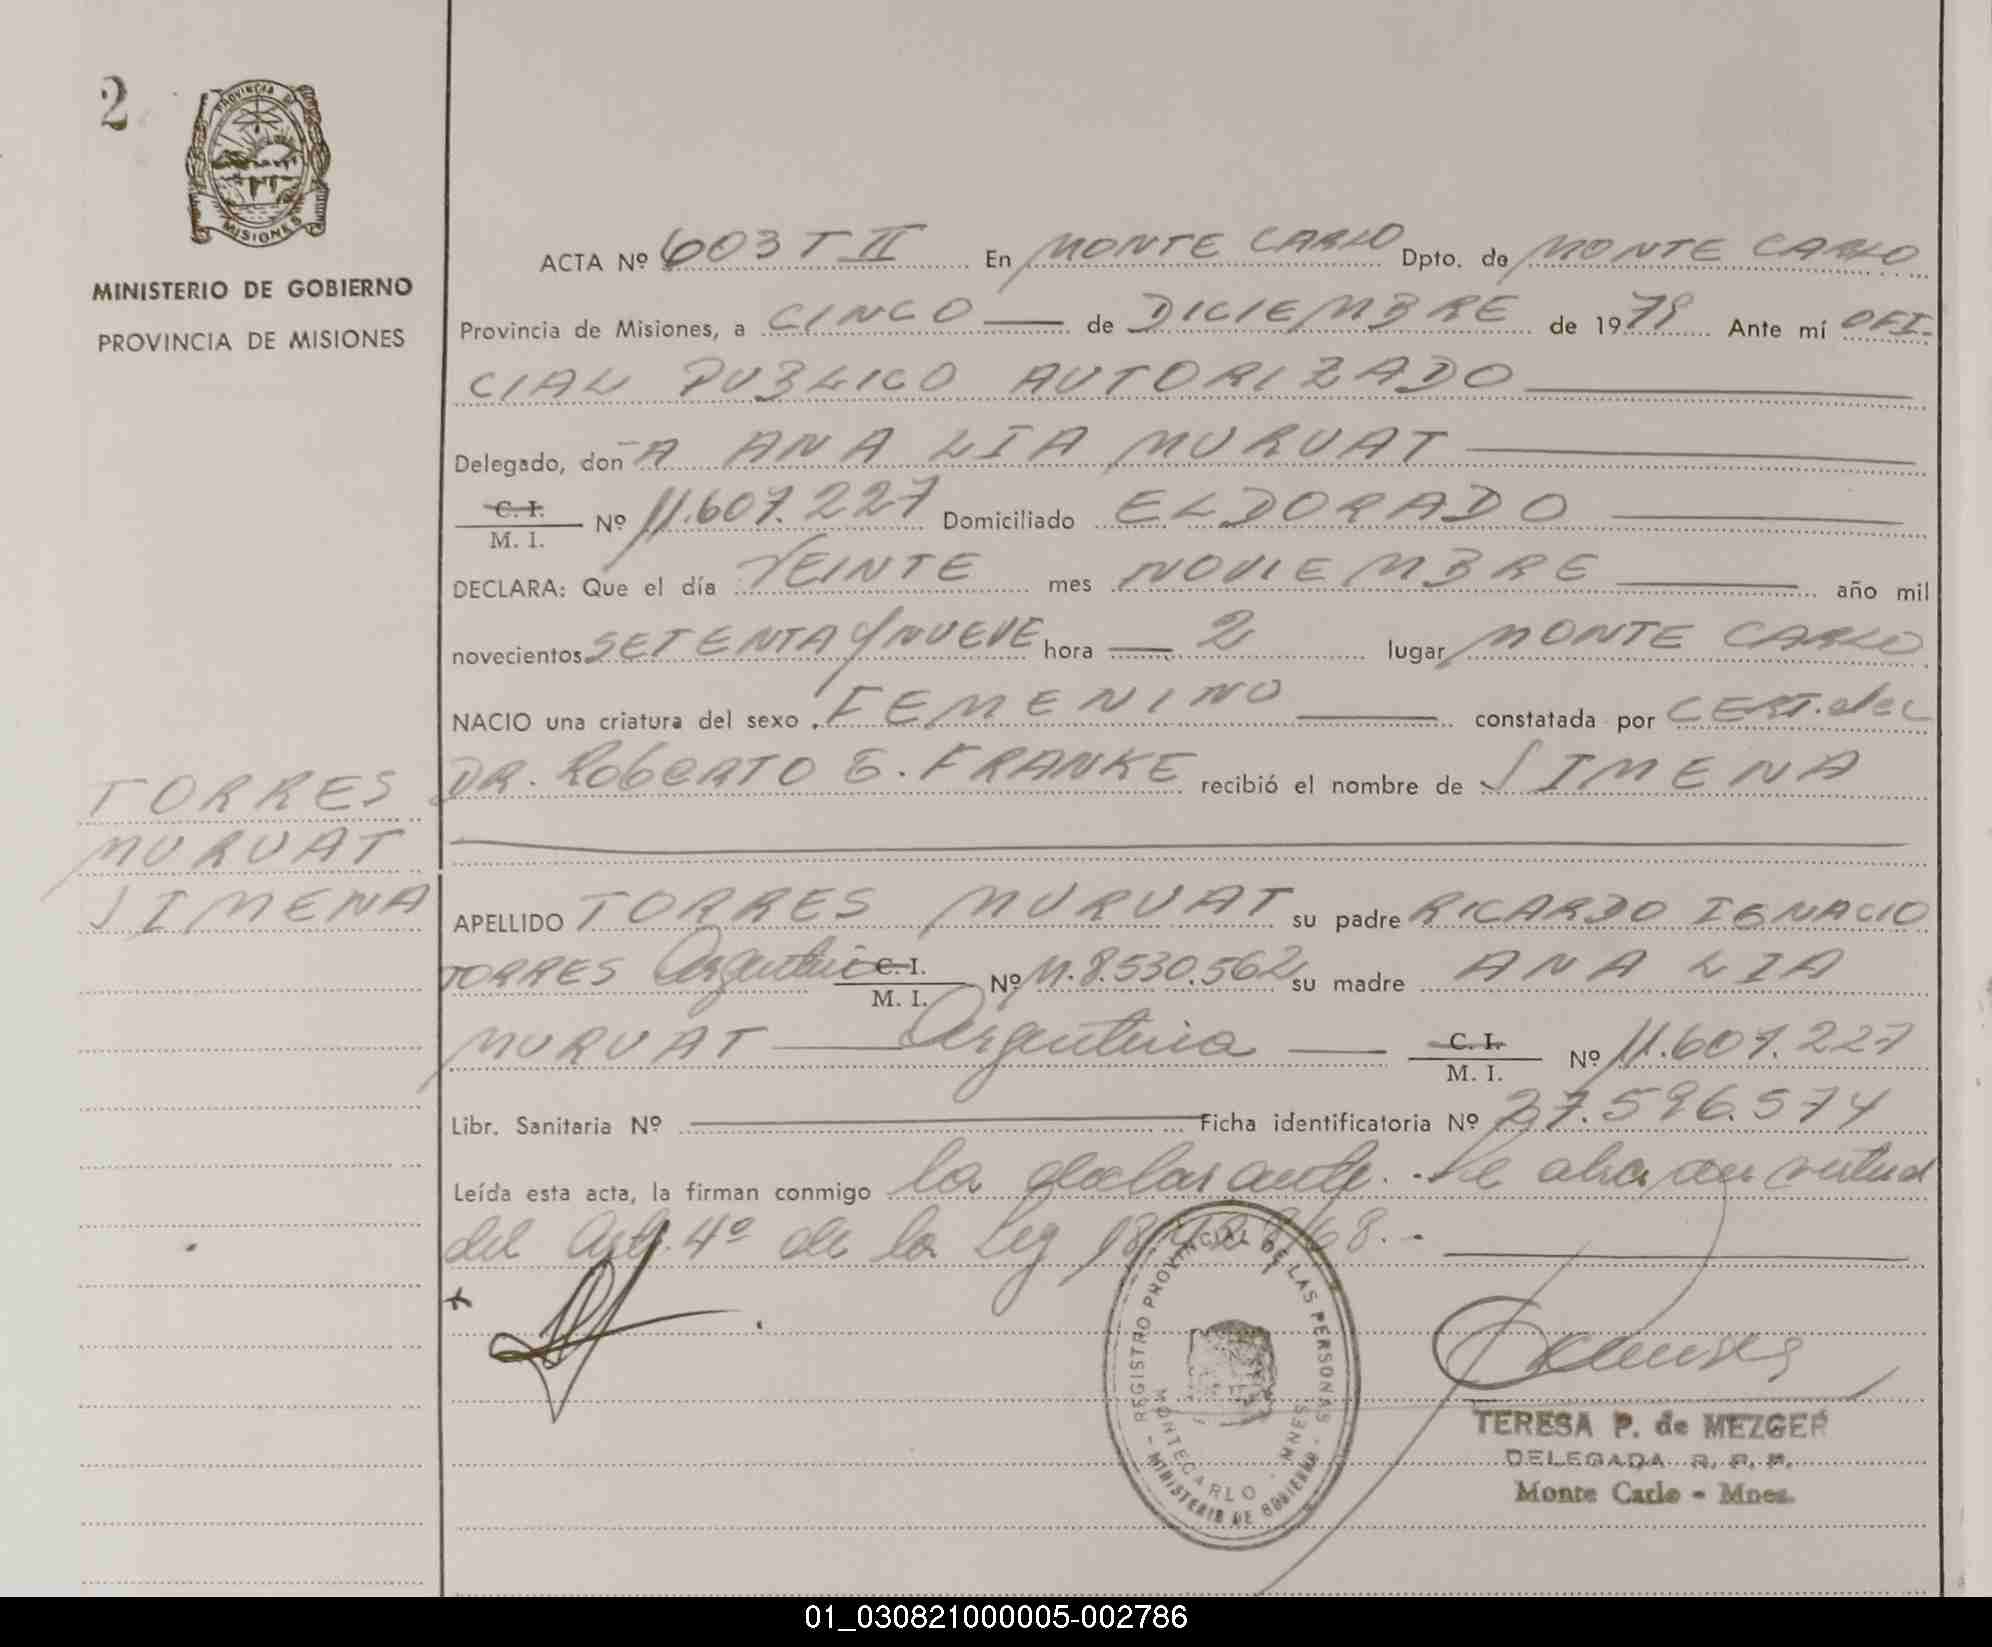 2
PROVINCIA DE
MISIONES
MINISTERIO DE GOBIERNO
PROVINCIA DE MISIONES
ACTA Nº 603 T II En MONTE CARLO Dpto. de MONTE CARLO
Provincia de Misiones, a CINCO — de DICIEMBRE de 1979 Ante mí OFI-
CIAL PUBLICO AUTORIZADO
Delegado, don-A ANA LIA MURUAT
C. I.
M. I. Nº 11.607.227 Domiciliado ELDORADO
DECLARA: Que el día VEINTE mes NOVIEMBRE año mil
novecientos SETENTA Y NUEVE hora — 2 lugar MONTE CARLO
NACIO una criatura del sexo FEMENINO constatada por CERT. del
DR. RobERTO E. FRANKE recibió el nombre de JIMENA
TORRES
MURUAT
JIMENA
APELLIDO TORRES MURUAT su padre RICARDO IGNACIO
TORRES Argentino C. I.
M. I. Nº M.8.530.562 su madre ANA LIA
MURUAT — Argentina — C. I.
M. I. Nº 11.607.227
Libr. Sanitaria Nº Ficha identificatoria Nº 27.596.574
Leída esta acta, la firman conmigo la declarante. Se en virtud
del Art. 4º de la Ley /68.-
REGISTRO PROVINCIAL DE LAS PERSONAS
MONTECARLO - MNES
- MINISTERIO DE GOBIERNO -
TERESA P. de MEZGER
DELEGADA R. P. P.
Monte Carlo - Mnes.
01_030821000005-002786